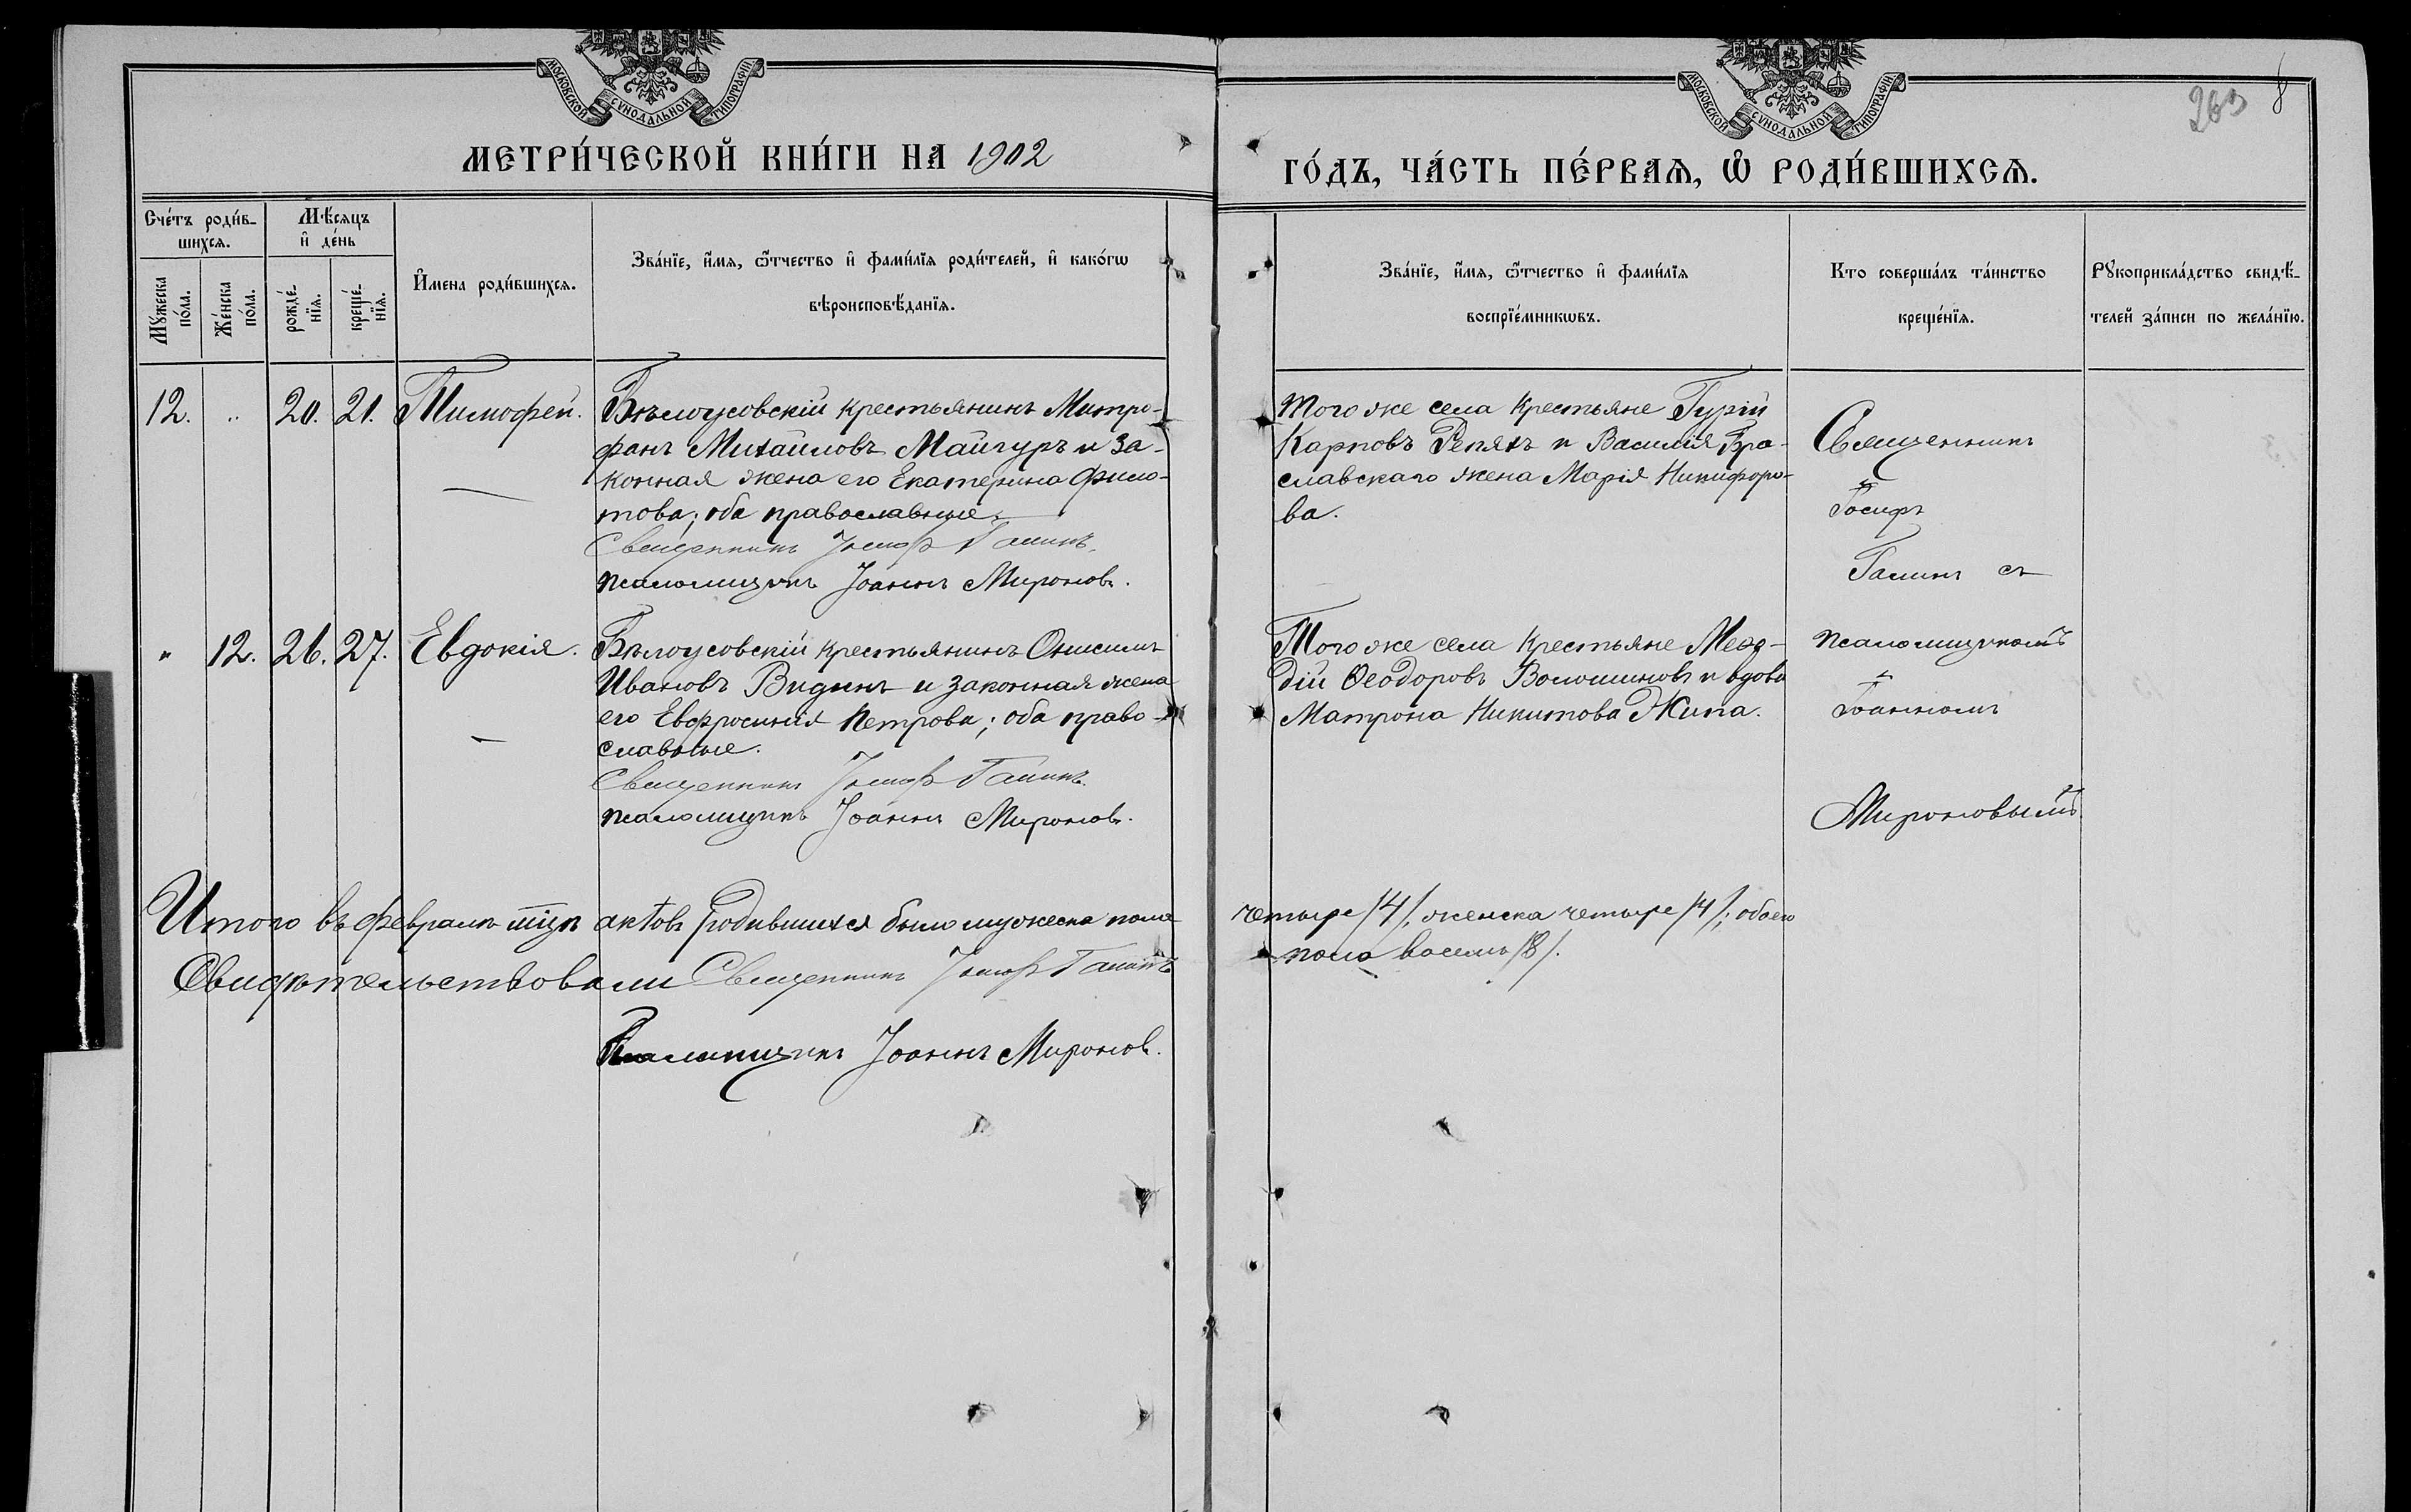 МОСКОВСКОЙ СУНОДАЛЬНОЙ ТИПОГРАФІИ
МОСКОВСКОЙ СУНОДАЛЬНОЙ ТИПОГРАФІИ
263 8
МЕТРИ́ЧЕСКОЙ КНИ́ГИ НА 1902
ГО́ДЪ, ЧА́СТЬ ПЕ́РВАЯ, Ѡ РОДИ́ВШИХСЯ.
Сче́тъ роди́в-
шихся.
Мꙋ́жеска
по́ла.
Же́нска
по́ла.
Мѣ́сяцъ
и҆ де́нь
рожде́-
нїя.
креще́-
нїя.
И҆мена роди́вшихся.
Зва́нїе, и҆́мя, ѻ҆́тчество и҆ фами́лїя роди́телей, и҆ како́гѡ
вѣроисповѣ́данїя.
Зва́нїе, и҆́мя, ѻ҆́тчество и҆ фами́лїя
воспрїе́мникѡвъ.
Кто соверша́лъ та́инство
креще́нїя.
Рꙋкоприкла́дство свидѣ́-
телей за́писи по жела́нїю.
12. " 20. 21. Тимофей.
Бѣлоусовскій крестьянинъ Митро-
фанъ Михаиловъ Майгуръ и за-
конная жена его Екатерина Фило-
това; оба православные.
Священникъ Іосиф Галинъ.
псаломщикъ Іоаннъ Миронов.
Того же села крестьяне Гурій
Карповъ Репяхъ и Василія Бра-
славскаго жена Марія Никифоро-
ва.
Священникъ
Іосифъ
Галинъ съ
" 12. 26. 27. Евдокія.
Бѣлоусовскій крестьянинъ Онисимъ
Ивановъ Видинъ и законная жена
его Евфросинія Петрова; оба право-
славные.
Священникъ Іосиф Галинъ.
псаломщикъ Іоаннъ Миронов.
Того же села крестьяне Меѳо-
дій Ѳеодоровъ Волошиновъ и вдова
Матрона Никитова Жила.
псаломщикомъ
Іоанномъ
Мироновымъ
Итого въ февралѣ мцѣ актовъ родившихся было мужеска пола
четыре /4/, женска четыре /4/; обоего
пола восемь /8/.
Свидѣтельствовали Священникъ Іосиф Галинъ
Псаломщикъ Іоаннъ Миронов.